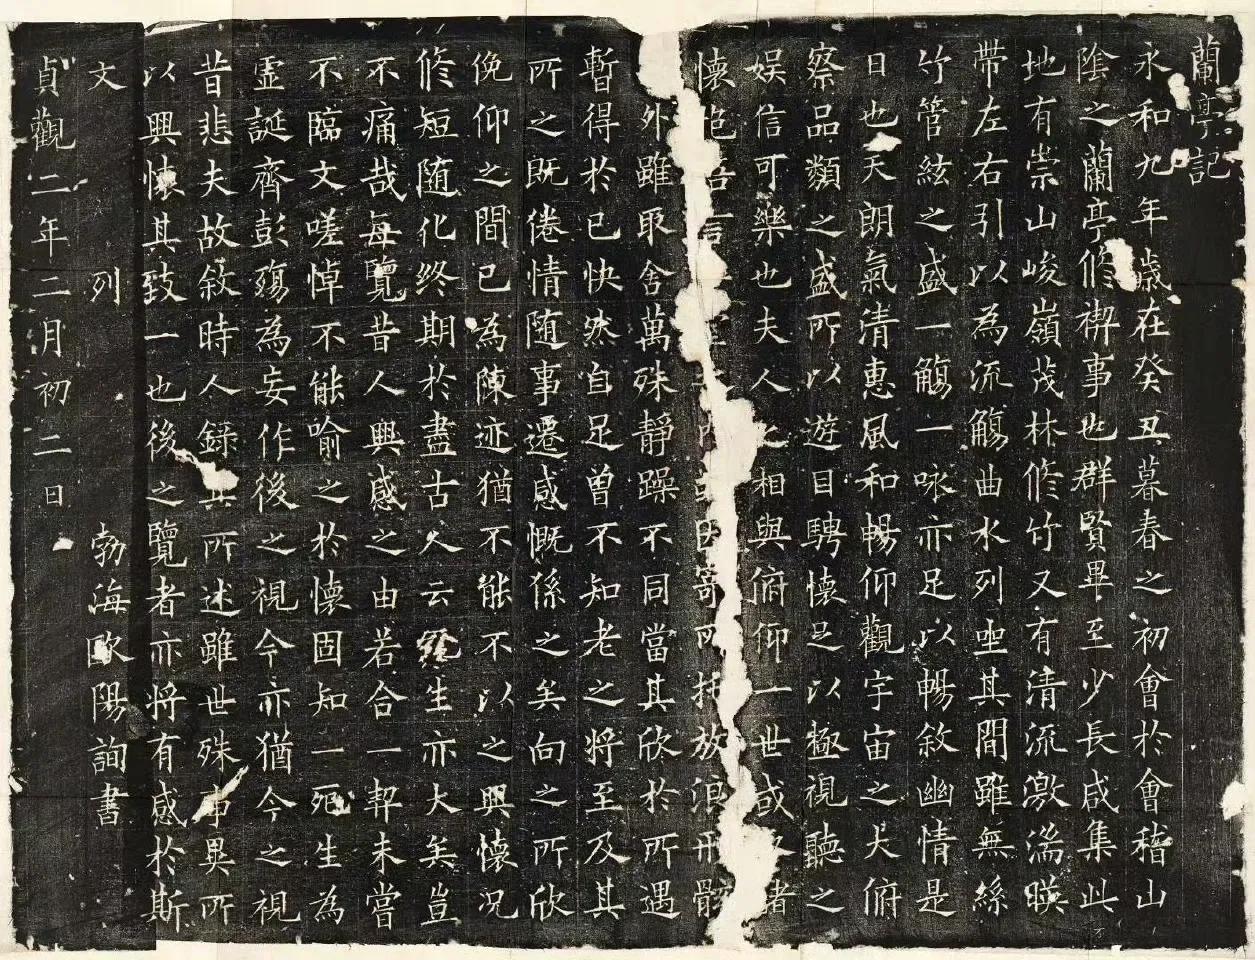 蘭亭記
永和九年歲在癸丑暮春之初會於會稽山
陰之蘭亭脩禊事也群賢畢至少長咸集此
地有崇山峻嶺茂林脩竹又有清流激湍暎
帶左右引以為流觴曲水列坐其間雖無絲
竹管絃之盛一觴一咏亦足以暢敘幽情是
日也天朗氣清惠風和暢仰觀宇宙之大俯
察品類之盛所以遊目騁懷足以極視聽之
娛信可樂也夫人之相與俯仰一世或取諸
懷抱言因寄所托放浪形骸
外雖取舍萬殊靜躁不同當其欣於所遇
暫得於己快然自足曾不知老之將至及其
所之既倦情随事遷感慨係之矣向之所欣
俛仰之間已為陳迹猶不能不以之興懷況
脩短随化終期於盡古人云死生亦大矣豈
不痛哉每覽昔人興感之由若合一契未嘗
不臨文嗟悼不能喻之於懷固知一死生為
虛誕齊彭殤為妄作後之視今亦猶今之視
昔悲夫故敘時人錄其所述雖世殊事異所
以興懷其致一也後之覽者亦將有感於斯
文 列 勃海歐陽詢書
貞觀二年二月初二日